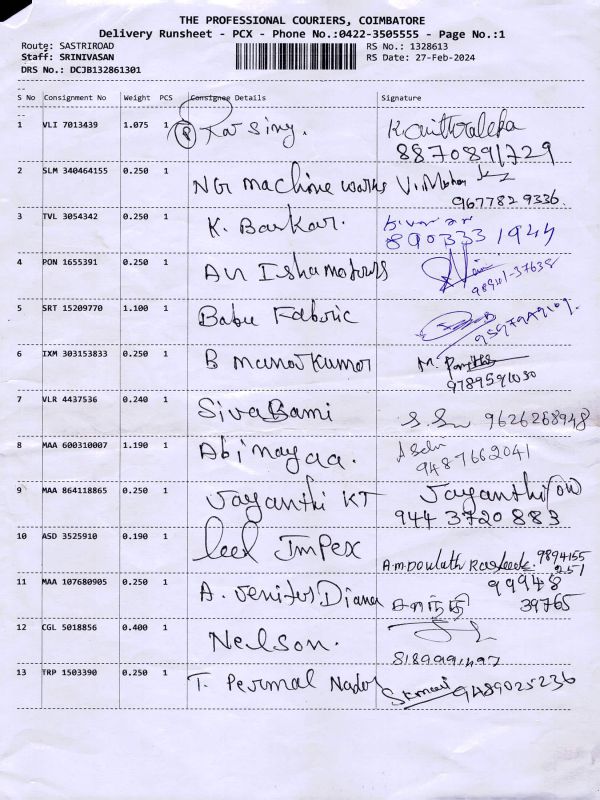 THE PROFESSIONAL COURIERS, COIMBATORE
Delivery Runsheet - PCX - Phone No.:0422-3505555 - Page No.:1
Route: SASTRIROAD RS No.: 1328613
Staff: SRINIVASAN RS Date: 27-Feb-2024
DRS No.: DCJB132861301
S No Consignment No Weight PCS Consignee Details Signature
1 VLI 7013439 1.075 1
8870891729
2 SLM 340464155 0.250 1 NGR machine works
9677829336.
3 TVL 3054342 0.250 1 K. Baskar.
8903331944
4 PON 1655391 0.250 1 Isha motors
98941-37638
5 SRT 15209770 1.100 1 Babu Fabric
6 IXM 303153833 0.250 1 B manoj Kumar M.
9789591030
7 VLR 4437536 0.240 1 SivaBami 9626268948
8 MAA 600310007 1.190 1 Abinayaa.
9487662041
9 MAA 864118865 0.250 1 Jayanthi KT Jayanthi
944 3720 883
10 ASD 3525910 0.190 1 Impex
9894155
251
11 MAA 107680905 0.250 1 A. Diana சாந்தி 99948
39765
12 CGL 5018856 0.400 1 Nelson.
8189991497
13 TRP 1503390 0.250 1 T. Permal Nador 9489025236